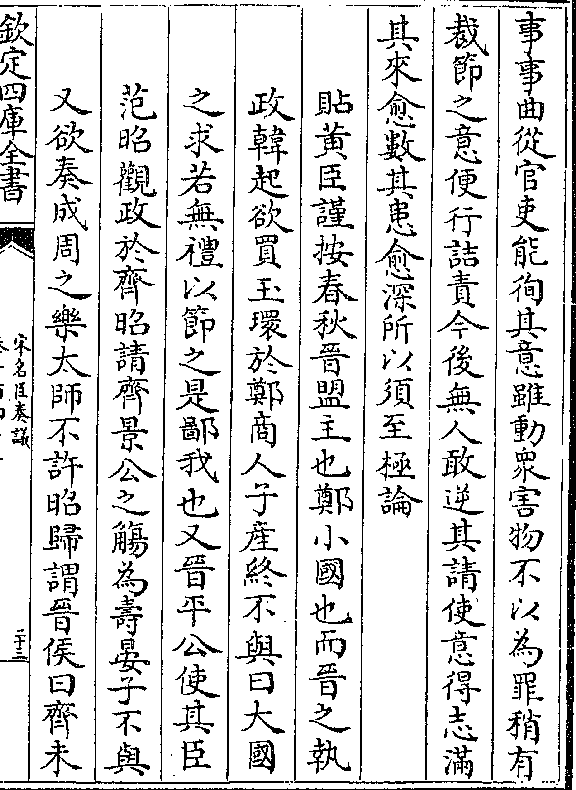 事事曲從官吏能徇其意雖動衆害物不以為罪稍有
裁節之意便行詰責今後無人敢逆其請使意得志滿
其來愈數其患愈深所以須至極論
貼黄臣謹按春秋晉盟主也鄭小國也而晉之執
政韓起欲買玉環於鄭商人子産終不與曰大國
之求若無禮以節之是鄙我也又晉平公使其臣
范昭觀政於齊昭請齊景公之觴為壽晏子不與
又欲奏成周之樂太師不許昭歸謂晉侯曰齊未
欽定四庫全書
宋名臣奏議
二十三